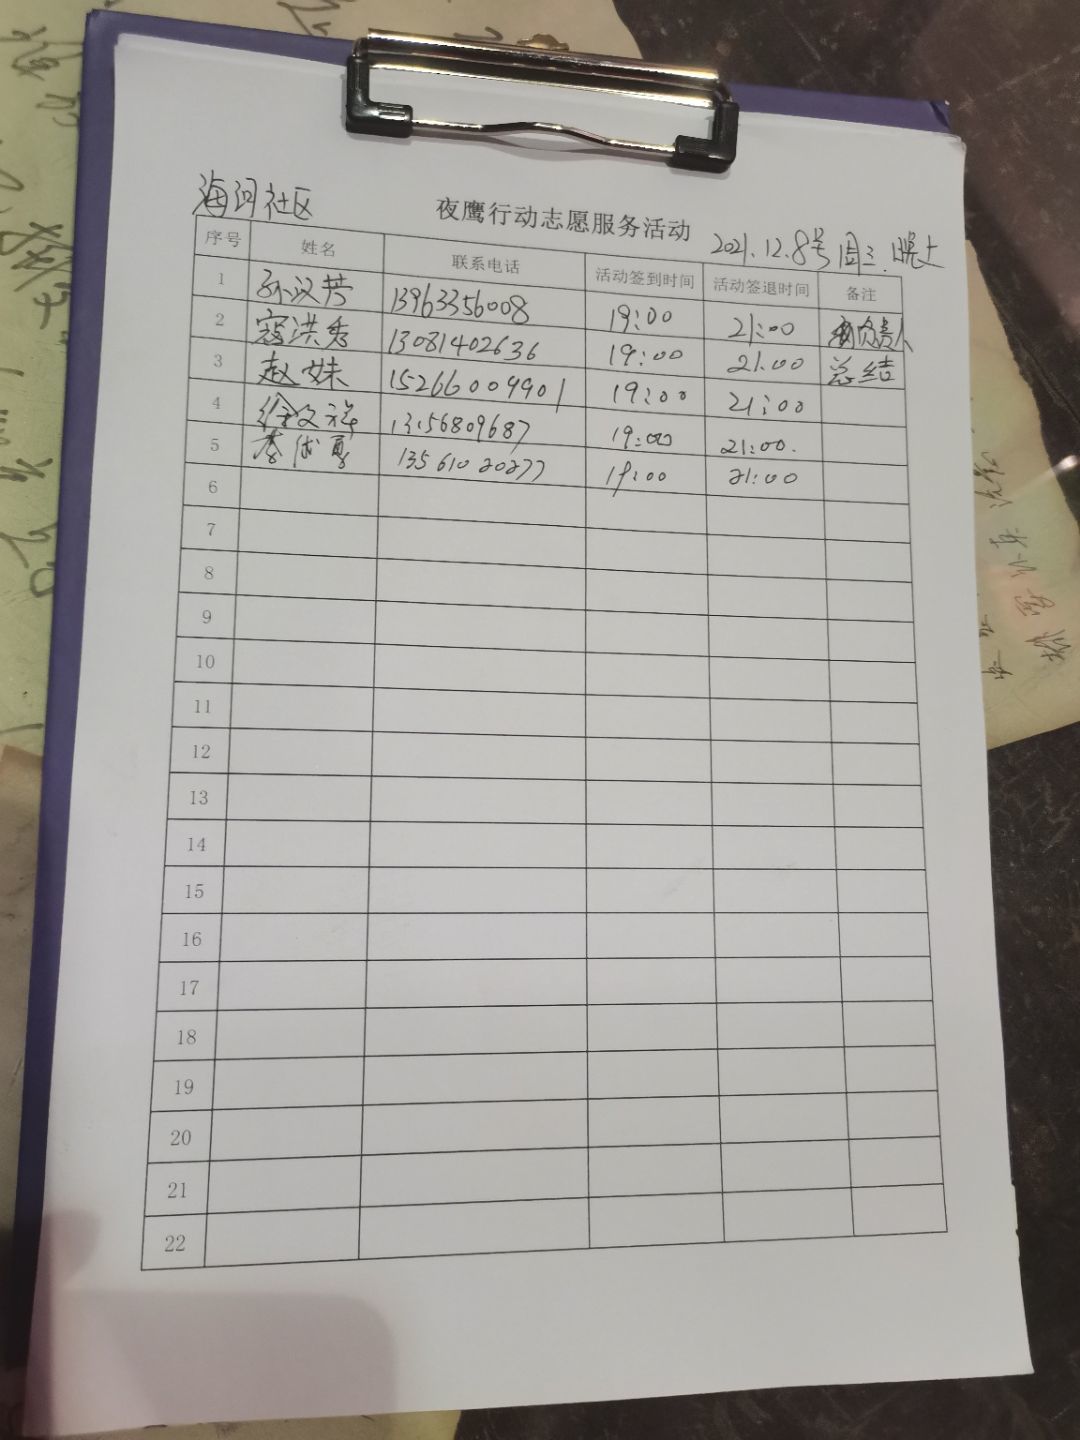 海河社区
夜鹰行动志愿服务活动
2021.12.8号 周三.晚上
序号 姓名 联系电话 活动签到时间 活动签退时间 备注
1 孙汉芳 13963356008 19:00 21:00 负责人
2 寇洪秀 13081402636 19:00 21.00 总结
3 赵妹 15266009901 19:00 21:00
4 徐文祥 13156809687 19:00 21:00.
5 13561020277 19:00 21:00
6
7
8
9
10
11
12
13
14
15
16
17
18
19
20
21
22